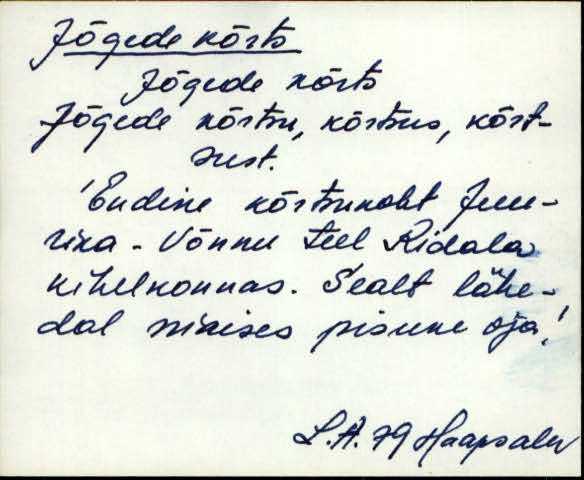 Jõgede kõrts
Jõgede kõrts
Jõgede kõrtsu, kõrtsus, kõrt-
sust.
'Endine kõrtsukoht Juu-
rika - Võnnu teel Ridala
kihelkonnas. Sealt lähe-
dal nirises pisune oja.'
L.A. 79 Haapsalu